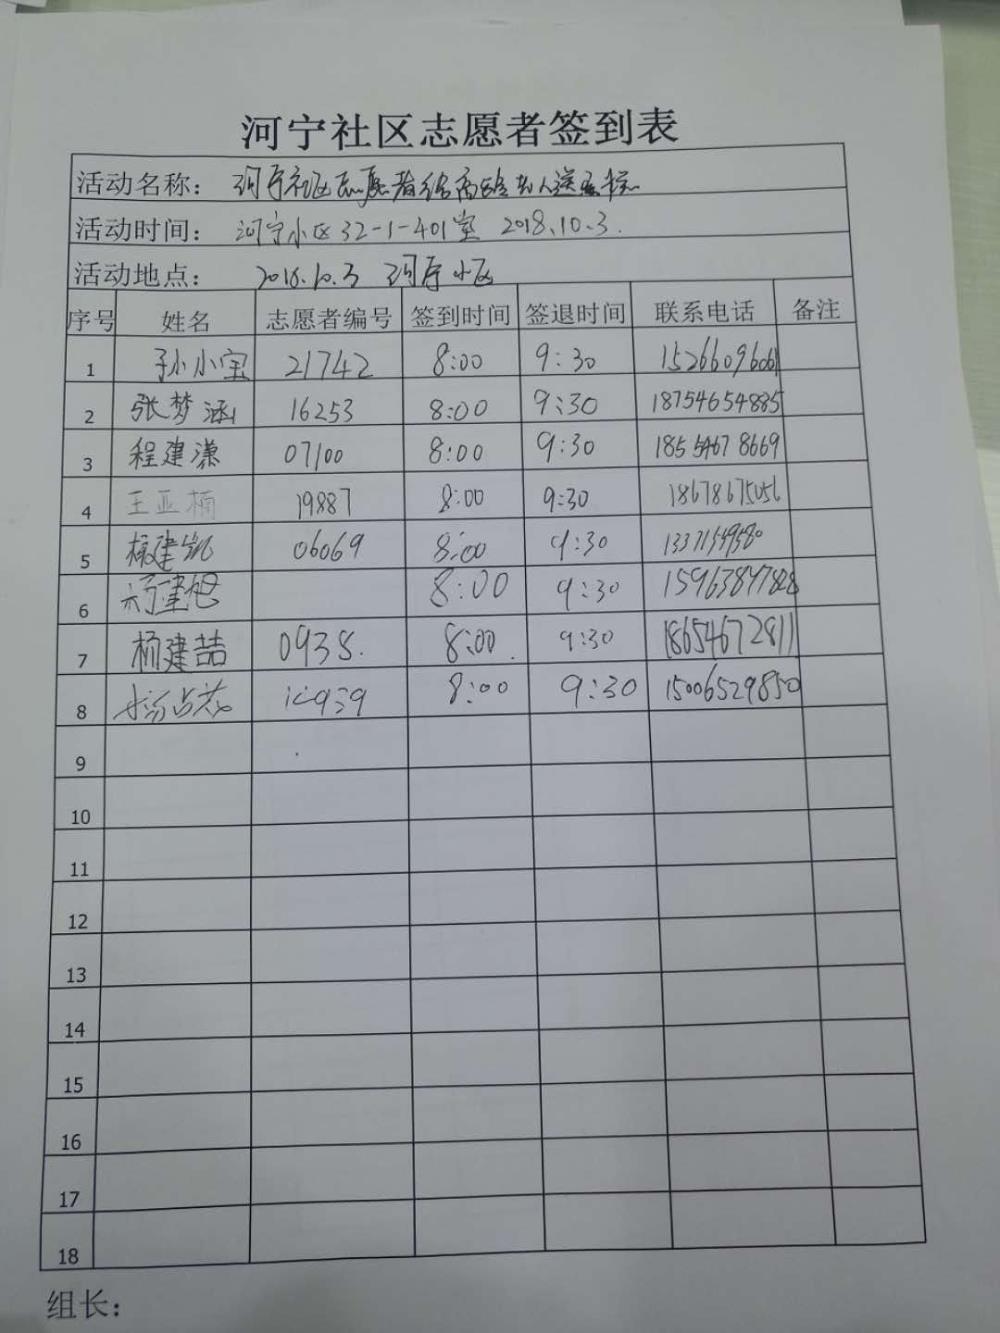 河宁社区志愿者签到表
活动名称： 河宁社区志愿者给高龄老人送
活动时间： 河宁小区32-1-401室 2018.10.3.
活动地点： 2018.10.3 河宁小区
序号 姓名 志愿者编号 签到时间 签退时间 联系电话 备注
1 孙小宝 21742 8:00 9:30 1526609606
2 张梦涵 16253 8:00 9:30 18754654885
3 程建濂 07100 8:00 9:30 18554678669
4 王亚楠 19887 8:00 9:30 18678675056
5 杨建凯 06069 8:00 9:30 13371549580
6 8:00 9:30 15963897828
7 杨建喆 0938. 8:00 9:30 18654672811
8 8:00 9:30 15006529850
9
10
11
12
13
14
15
16
17
18
组长：